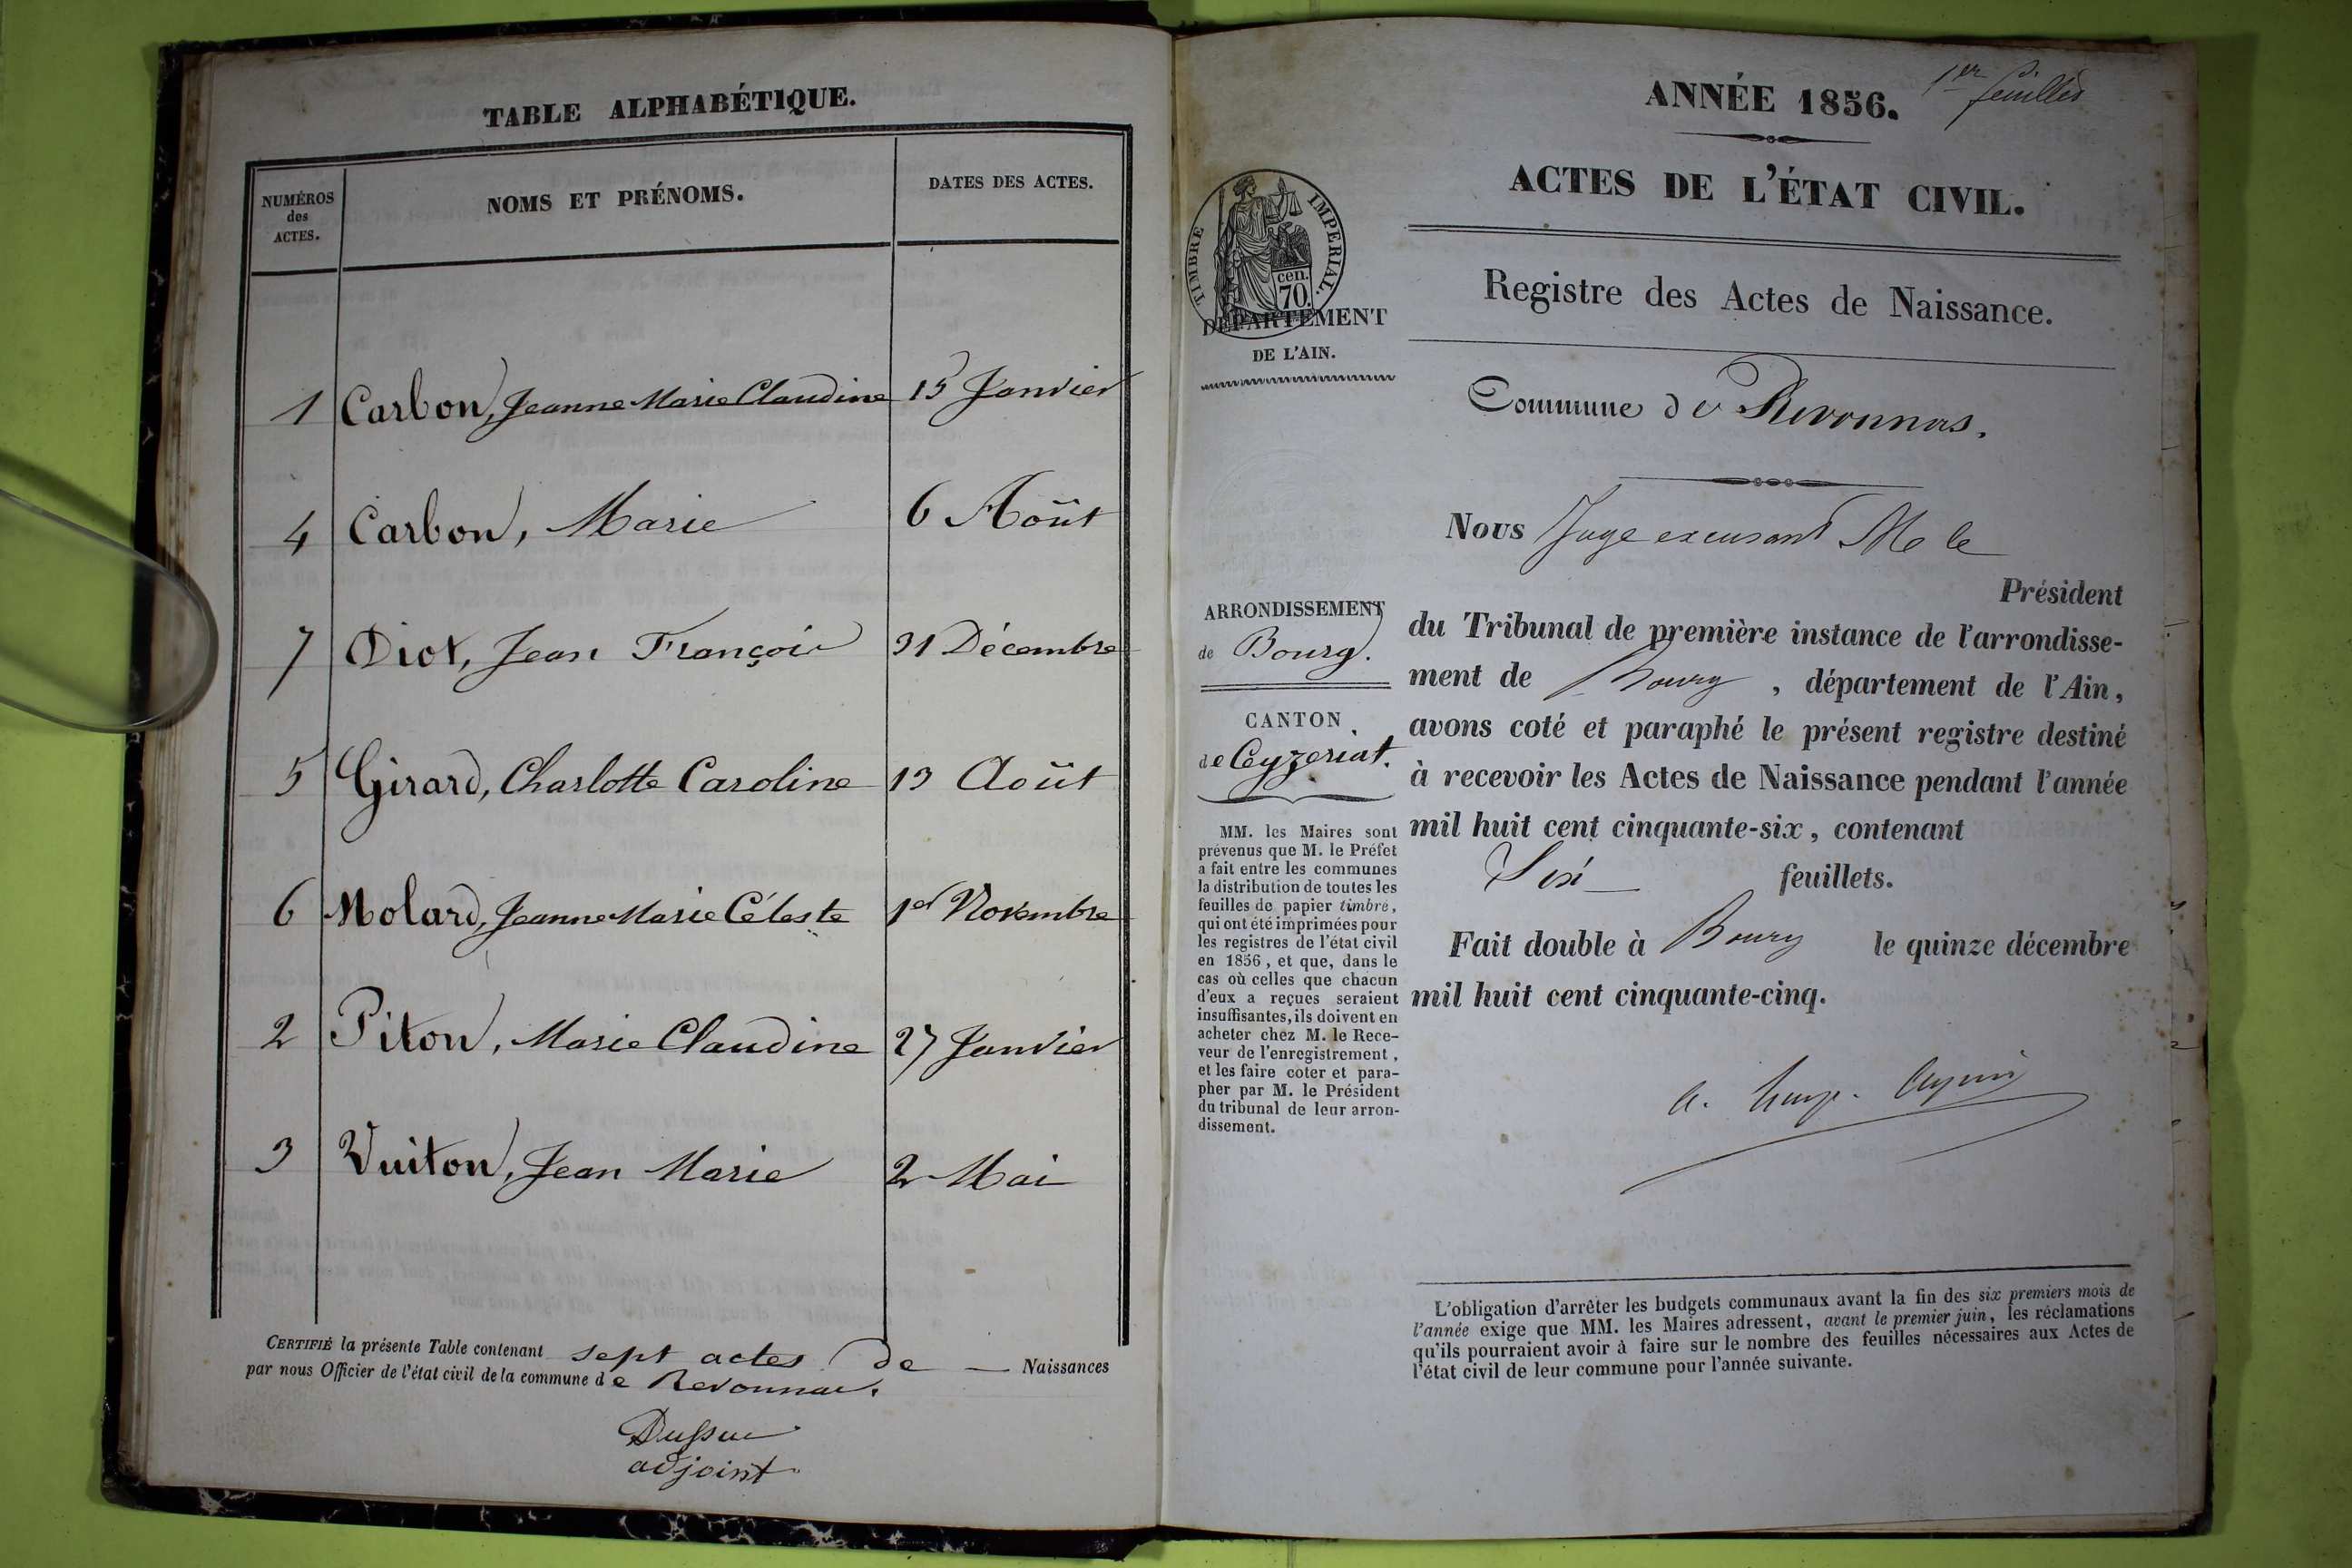 TABLE ALPHABÉTIQUE.
NUMÉROS
des
ACTES.
NOMS ET PRÉNOMS.
DATES DES ACTES.
1 Carbon, Jeanne Marie Claudine 15 Janvier
4 Carbon, Marie 6 Août
7 Diot, Jean François 31 Décembre
5 Girard, Charlotte Caroline 13 Août
6 Molard, Jeanne Marie Céleste 1er Novembre
2 Piton, Marie Claudine 27 Janvier
3 Vuiton, Jean Marie 2 Mai
CERTIFIÉ la présente Table contenant sept actes de Naissances
par nous Officier de l'état civil de la commune de Revonnas.
adjoint
1er feuillet
ANNÉE 1856.
ACTES DE L'ÉTAT CIVIL.
Registre des Actes de Naissance.
Commune de Revonnas.
TIMBRE IMPERIAL.
cen.
70.
DÉPARTEMENT
DE L'AIN.
ARRONDISSEMENT
de Bourg.
CANTON
de Ceyzeriat.
MM. les Maires sont
prévenus que M. le Préfet
a fait entre les communes
la distribution de toutes les
feuilles de papier timbré,
qui ont été imprimées pour
les registres de l'état civil
en 1856, et que, dans le
cas où celles que chacun
d'eux a reçues seraient
insuffisantes, ils doivent en
acheter chez M. le Rece-
veur de l'enregistrement,
et les faire coter et para-
pher par M. le Président
du tribunal de leur arron-
dissement.
Nous Juge excusant M le
Président
du Tribunal de première instance de l'arrondisse-
ment de Bourg, département de l'Ain,
avons coté et paraphé le présent registre destiné
à recevoir les Actes de Naissance pendant l'année
mil huit cent cinquante-six, contenant
Six feuillets.
Fait double à Bourg le quinze décembre
mil huit cent cinquante-cinq.
L'obligation d'arrêter les budgets communaux avant la fin des six premiers mois de
l'année exige que MM. les Maires adressent, avant le premier juin, les réclamations
qu'ils pourraient avoir à faire sur le nombre des feuilles nécessaires aux Actes de
l'état civil de leur commune pour l'année suivante.